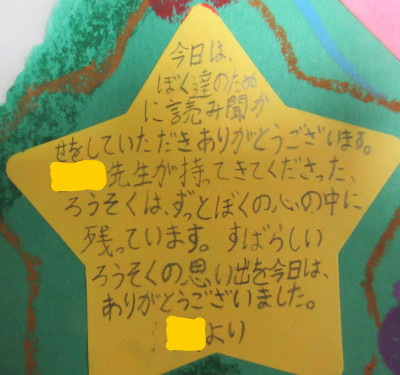 今日は、
ぼく達のため
に読み聞か
せをしていただきありがとうございます。
先生が持ってきてくださった、
ろうそくは、ずっとぼくの心の中に
残っています。すばらしい
ろうそくの思い出を今日は、
ありがとうございました。
より